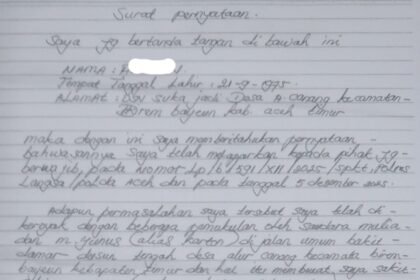 Surat pernyataan.
Saya yg bertanda tangan di bawah ini
NAMA :
Tempat Tanggal Lahir : 21-9-1975.
ALAMAT : Dsn Suka jadi Desa A. Canang kecamatan
Birem bayeun kab. aceh timur
maka dengan ini saya memberitahukan pernyataan
bahwasannya saya telah melaporkan kepada pihak yg
berwajib, pada Nomor Lp/b/591/XII/2025/spkt. Polres
Langsa/polda Aceh dan pada tanggal 5 desember 2025.
Adapun permasalahan saya tersebut saya telah di-
keroyok dengan beberapa pemukulan oleh saudara mulia
dan m. yunus (alias karton) di jalan umum bukit
damar dusun tengah desa alur canang kecamatan birem
bayeun kabupaten timur dan hal itu membuat saya sakit